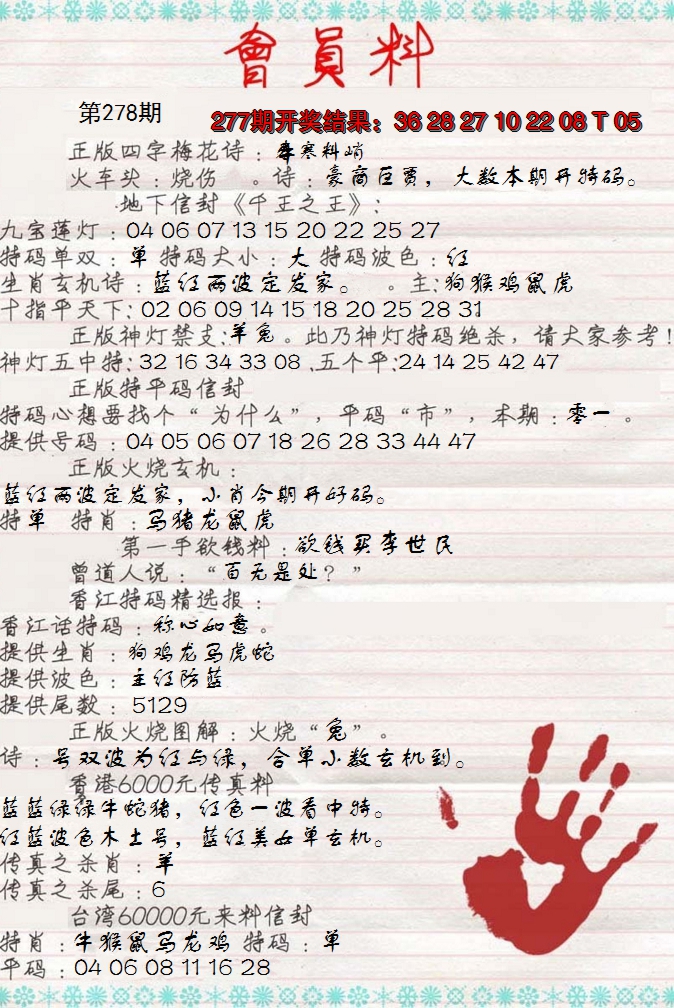 會員料
第278期
277期开奖结果：36 28 27 10 22 08 T 05
正版四字梅花诗：春寒料峭
火车头：烧伤 。诗：豪商巨贾，大数本期开特码。
地下信封《千王之王》：
九宝莲灯：04 06 07 13 15 20 22 25 27
特码单双：单 特码大小：大 特码波色：红
生肖玄机诗：蓝红两波定发家。 。主:狗猴鸡鼠虎
十指平天下: 02 06 09 14 15 18 20 25 28 31
正版神灯禁支:羊兔。此乃神灯特码绝杀，请大家参考!
神灯五中特: 32 16 34 33 08 .五个平:24 14 25 42 47
正版特平码信封
特码心想要找个“为什么”，平码“市”，本期：零一 。
提供号码：04 05 06 07 18 26 28 33 44 47
正版火烧玄机：
蓝红两波定发家，小肖今期开好码。
特单 特肖：马猪龙鼠虎
第一手欲钱料：欲钱买李世民
曾道人说：“百无是处？”
香江特码精选报：
香江话特码：称心如意。
提供生肖：狗鸡龙马虎蛇
提供波色：主红防蓝
提供尾数：5129
正版火烧图解：火烧“兔”。
诗：号双波为红与绿，合单小数玄机到。
香港6000元传真料
蓝蓝绿绿牛蛇猪，红色一波看中特。
红蓝波色木土号，蓝红美女单玄机。
传真之杀肖：羊
传真之杀尾：6
台湾60000元来料信封
特肖：牛猴鼠马龙鸡 特码：单
平码：04 06 08 11 16 28